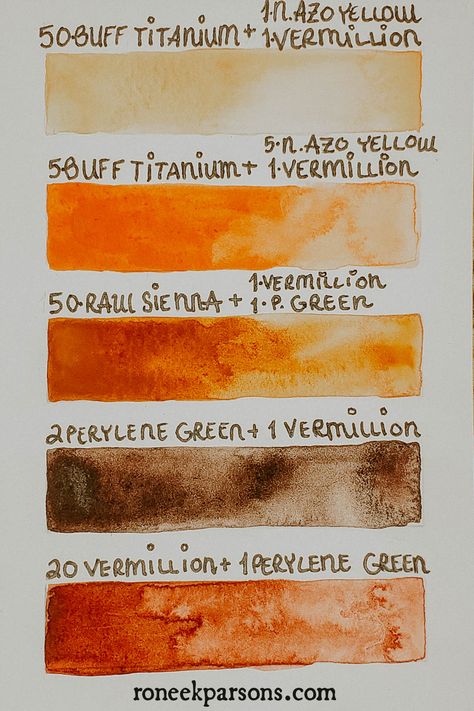 1·N. AZO YELLOW
50·BUFF TITANIUM + 1·VERMILLION
5·N. AZO YELLOW
5·BUFF TITANIUM + 1·VERMILLION
1·VERMILLION
50·RAW SIENNA + 1·P. GREEN
2 PERYLENE GREEN + 1 VERMILLION
20 VERMILLION + 1 PERYLENE GREEN
roneekparsons.com